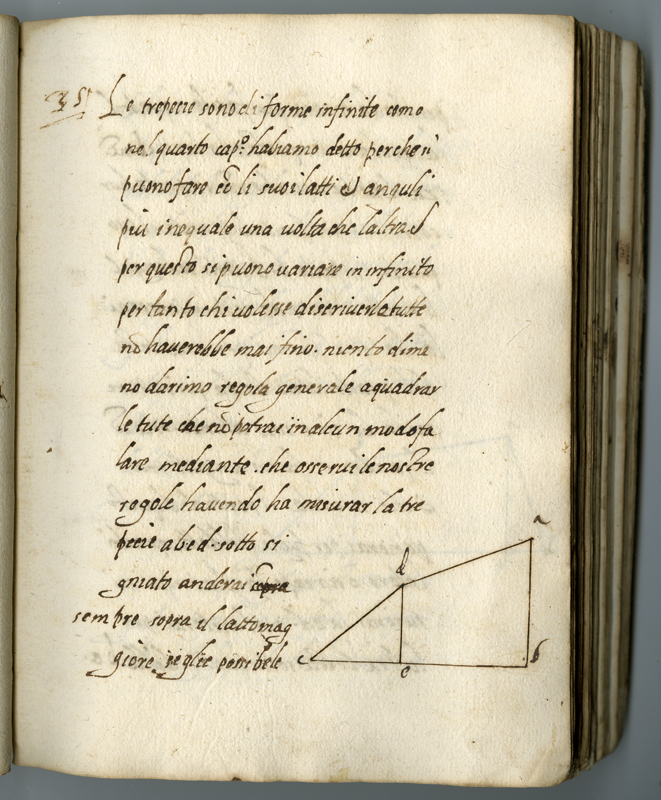 35
Le trepecie sono di forme infinite come
nel quarto capº: habiamo detto perche si
puono fare cõ li suoi latti et anguli
piu inequale una volta che l'altra et
per questo si puono variare in infinito
per tanto chi volesse discriverle tutte
nõ haverebbe mai fine. niento dime
no darimo regola generale a quadrar
le tute che nõ potrai in alcun modo fa
lare mediante. che osservi le nostre
regole havendo ha misurar la tre
pecie abcd. sotto si
gniato anderai sopra
sempre sopra il latto mag
giore se glie possibele
a
d
c
e
b